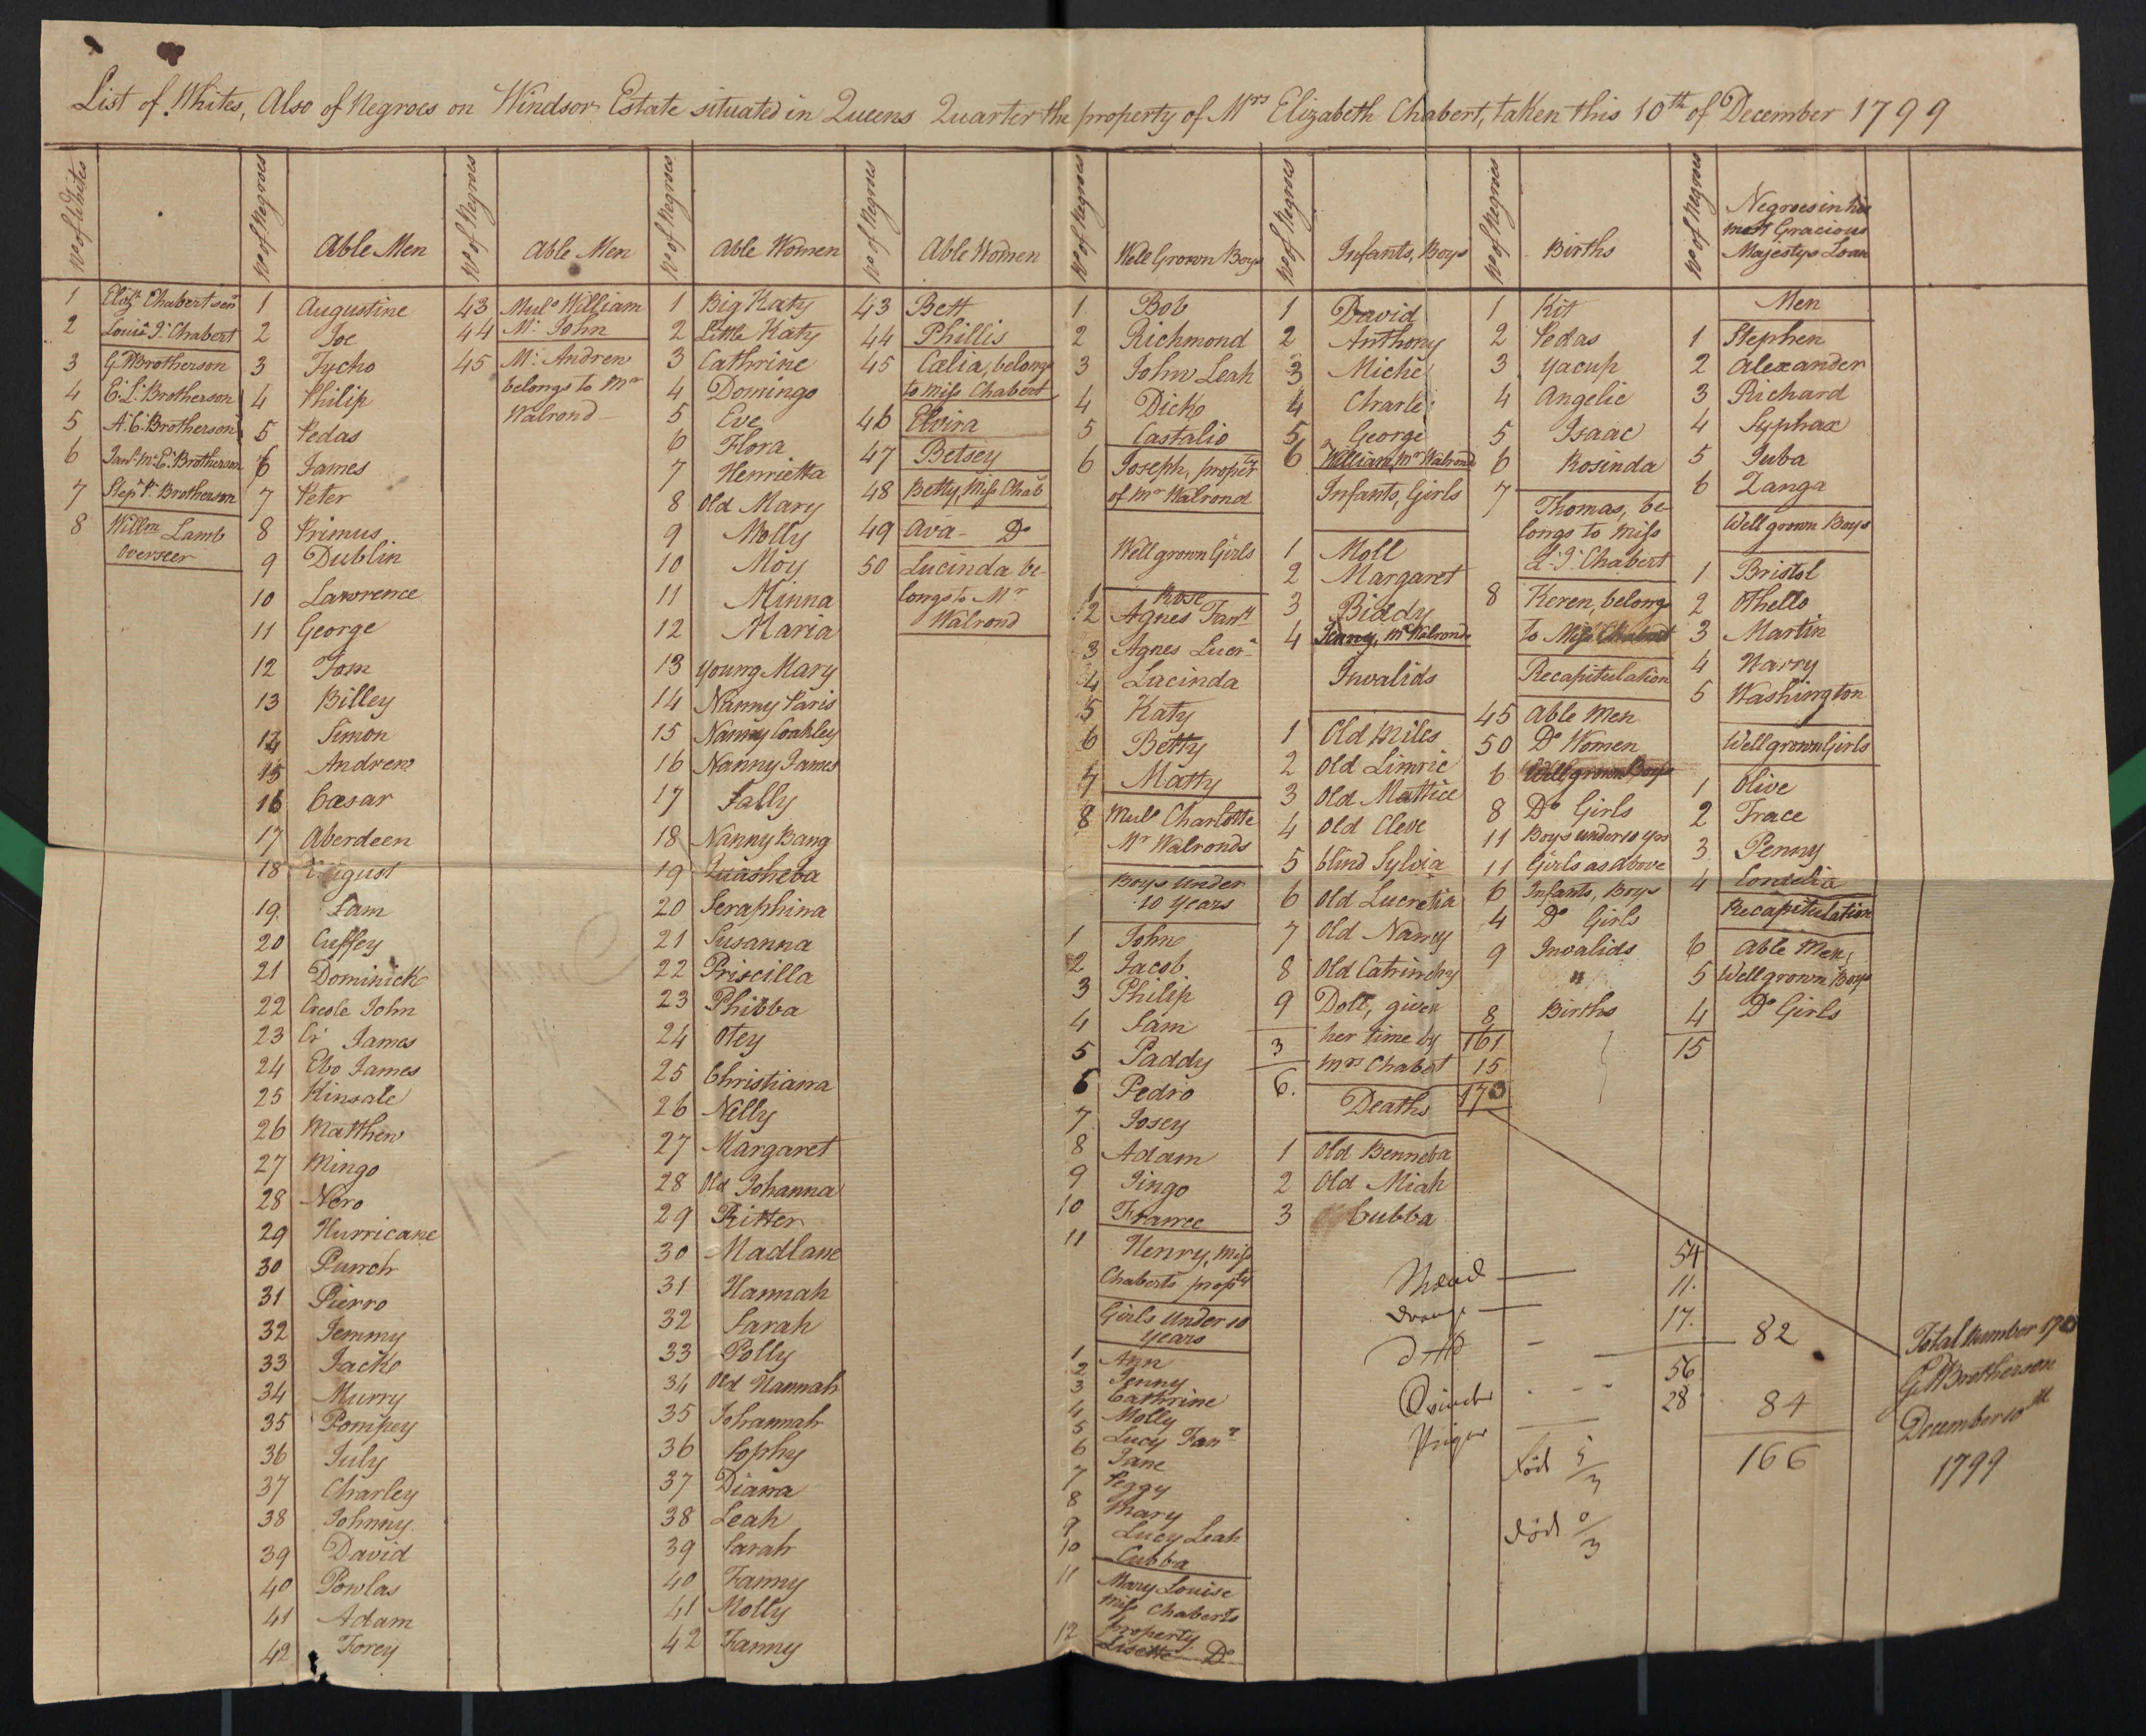 List of Whites, Also of Negroes on Windsor Estate situated in Queens Quarter the property of Mrs Elizabeth Chabert, taken this 10th of December 1799
No of Whites
1 Elizth Chabert senr
2 Louis J. Chabert
3 G. Brotherson
4 E. L. Brotherson
5 A. C. Brotherson
6 Brotherson
7 Brotherson
8 Willm Lamb
Overseer
No of Negroes
Able Men
1 Augustine
2 Joe
3 Tycho
4 Philip
5 Pedas
6 James
7 Peter
8 Primus
9 Dublin
10 Lawrence
11 George
12 Tom
13 Billey
14 Simon
15 Andrew
16 Cæsar
17 Aberdeen
18 August
19 Sam
20 Cuffey
21 Dominick
22 Creole John
23 Cr James
24 Ebo James
25 Kinsale
26 Matthew
27 Mingo
28 Nero
29 Hurricane
30 Punch
31 Pierro
32 Jemmy
33 Jacko
34 Murry
35 Pompey
36 July
37 Charley
38 Johnny
39 David
40 Powlas
41 Adam
42 Forey
No of Negroes
Able Men
43 Mulo William
44 M: John
45 M: Andrew
belongs to Mr
Walrond
No of Negroes
Able Women
1 Big Katy
2 Little Katy
3 Cathrine
4 Domingo
5 Eve
6 Flora
7 Henrietta
8 Old Mary
9 Molly
10 Moy
11 Minna
12 Maria
13 Young Mary
14 Nanny Paris
15 Nanny Coakley
16 Nanny James
17 Sally
18 Nanny Bang
19 Quasheba
20 Seraphina
21 Susanna
22 Priscilla
23 Phibba
24 Otey
25 Christiana
26 Nelly
27 Margaret
28 Old Johanna
29 Ritter
30 Madlane
31 Hannah
32 Sarah
33 Polly
34 Old Hannah
35 Johannah
36 Sophy
37 Diana
38 Leah
39 Sarah
40 Fanny
41 Molly
42 Fanny
No of Negroes
Able Women
43 Bett
44 Phillis
45 Cælia, belongs
to Miss Chabert
46 Elvira
47 Betsey
48 Betty, Miss Chab
49 Ava - Do
50 Lucinda be-
longs to Mr
Walrond
No of Negroes
Well Grown Boys
1 Bob
2 Richmond
3 John Leah
4 Dicko
5 Castalio
6 Joseph, property
of Mr Walrond
Well grown Girls
1 Rose
2 Agnes Fann
3 Agnes Lucr
4 Lucinda
5 Katy
6 Betty
7 Matty
8 Mulo Charlotte
Mr Walronds
Boys under
10 Years
1 John
2 Jacob
3 Philip
4 Sam
5 Paddy
6 Pedro
7 Josey
8 Adam
9 Jingo
10 France
11 Henry, Miss
Chaberts propty
Girls Under 10
Years
1 Ann
2 Jenny
3 Cathrine
4 Molly
5 Lucy Fan
6 Jane
7 Peggy
8 Mary
9 Lucy Leah
10 Cubba
11 Mary Louise
Miss Chaberts
property
12 Lisette Do
No of Negroes
Infants, Boys
1 David
2 Anthony
3 Miche
4 Charle
5 George
6 William, Mr Walrond
Infants, Girls
1 Moll
2 Margaret
3 Biddy
4 Jenny, Mr Walronds
Invalids
1 Old Miles
2 Old Limric
3 Old Mattice
4 Old Cleve
5 blind Sylvia
6 Old Lucretia
7 Old Nancy
8 Old Catrinchy
9 Doll, given
her time by
Mrs Chabert
3
6.
Deaths
1 Old Benneba
2 Old Miah
3 Cubba
No of Negroes
Births
1 Kit
2 Pedas
3 Yacup
4 Angelic
5 Isaac
6 Rosinda
7 Thomas, be-
longs to Miss
L. J. Chabert
8 Keren, belongs
to Miss Chabert
Recapitulation
45 Able Men
50 Do Women
6 Well grown Boys
8 Do Girls
11 Boys under 10 yrs
11 Girls as above
6 Infants, Boys
4 Do Girls
9 Invalids
"
8 Births
161
15
173
No of Negroes
Negroes in his
most Gracious
Majestys Loan
Men
1 Stephen
2 Alexander
3 Richard
4 Syphax
5 Juba
6 Zanga
Well grown Boys
1 Bristol
2 Othello
3 Martin
4 Harry
5 Washington
Well grown Girls
1 Olive
2 Trace
3 Penny
4 Cordelia
Recapitulation
6 Able Men,
5 Well grown Boys
4 Do Girls
15
Mænd — 54
Drenge — 11.
ditto - 17. — 82
Qvinder - - - 56
Piger — 28 84
166
Fød 5/3
Død 0/3
Total Number 173
G. Brotherson
December 10th
1799